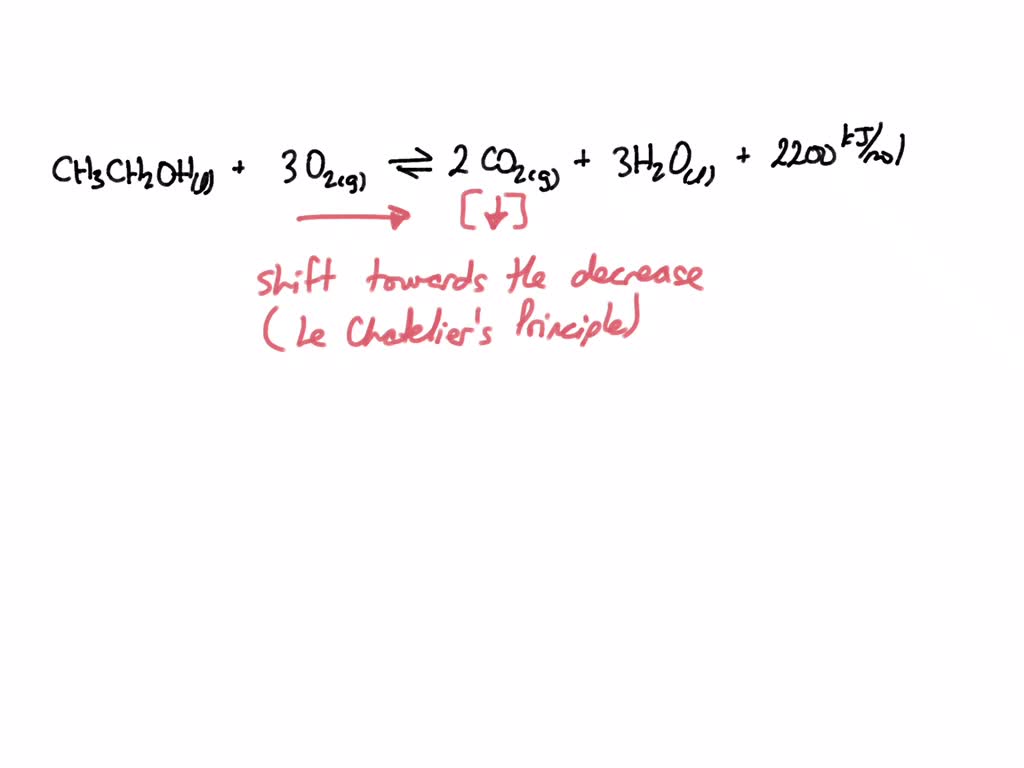 CH₃CH₂OH₍ₗ₎ + 3 O₂₍g₎ ⇌ 2 CO₂₍g₎ + 3H₂O₍ₗ₎ + 2200 kJ/mol
→ [↓]
shift towards the decrease
(Le Chatelier's Principle)